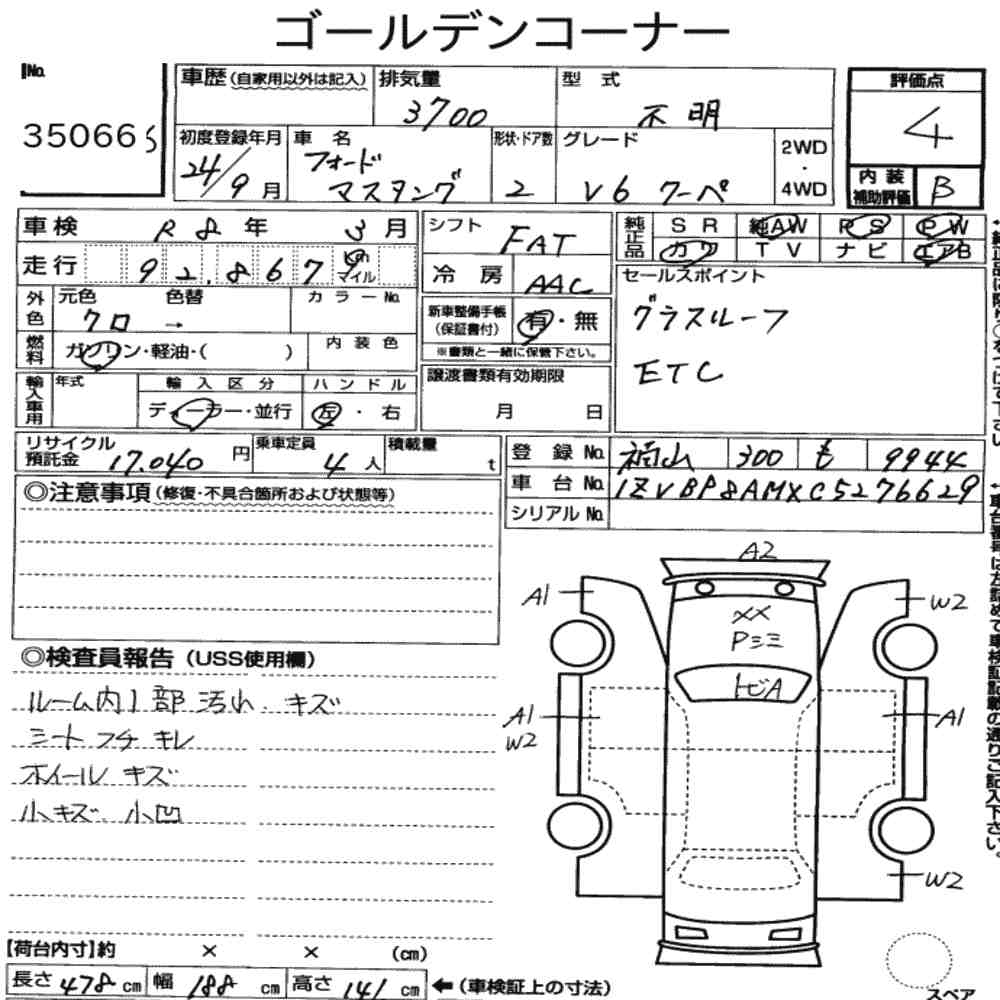 ゴールデンコーナー
No.
35066 S
車歴(自家用以外は記入)
排気量
3700
型 式
不明
評価点
4
初度登録年月
24/9月
車 名
フォード
マスタング
形状・ドア数
2
グレード
V6 クーペ
2WD
・
4WD
内 装
補助評価
B
車検 R8年 3月
走行 92,867 km
マイル
シフト
FAT
冷 房 AAC
純正品
SR 純AW PS PW
カワ TV ナビ エアB
外色
元色 色替
クロ →
カラーNo.
新車整備手帳
(保証書付)
有・無
※書類と一緒に保管下さい。
セールスポイント
グラスルーフ
ETC
燃料
ガソリン・軽油・( )
内 装 色
輸入車用
年式
輸 入 区 分
ディーラー・並行
ハ ン ド ル
左・右
譲渡書類有効期限
月 日
リサイクル
預託金 17,040 円
乗車定員
4人
積載量
t
登 録 No. 福山 300 も 9944
車 台 No. 1ZVBP8AMXC5276629
シリアル No.
◎注意事項(修復・不具合箇所および状態等)
◎検査員報告(USS使用欄)
ルーム内1部汚れ、キズ
シートフチキレ
ホイールキズ
小キズ、小凹
A2
A1
W2
XX
Pミミ
トビA
A1
W2
A1
W2
【荷台内寸】約 × × (cm)
長さ 478 cm 幅 188 cm 高さ 141 cm ←(車検証上の寸法)
スペア
↑車台番号は左詰めで車検証記載の通りご記入下さい。